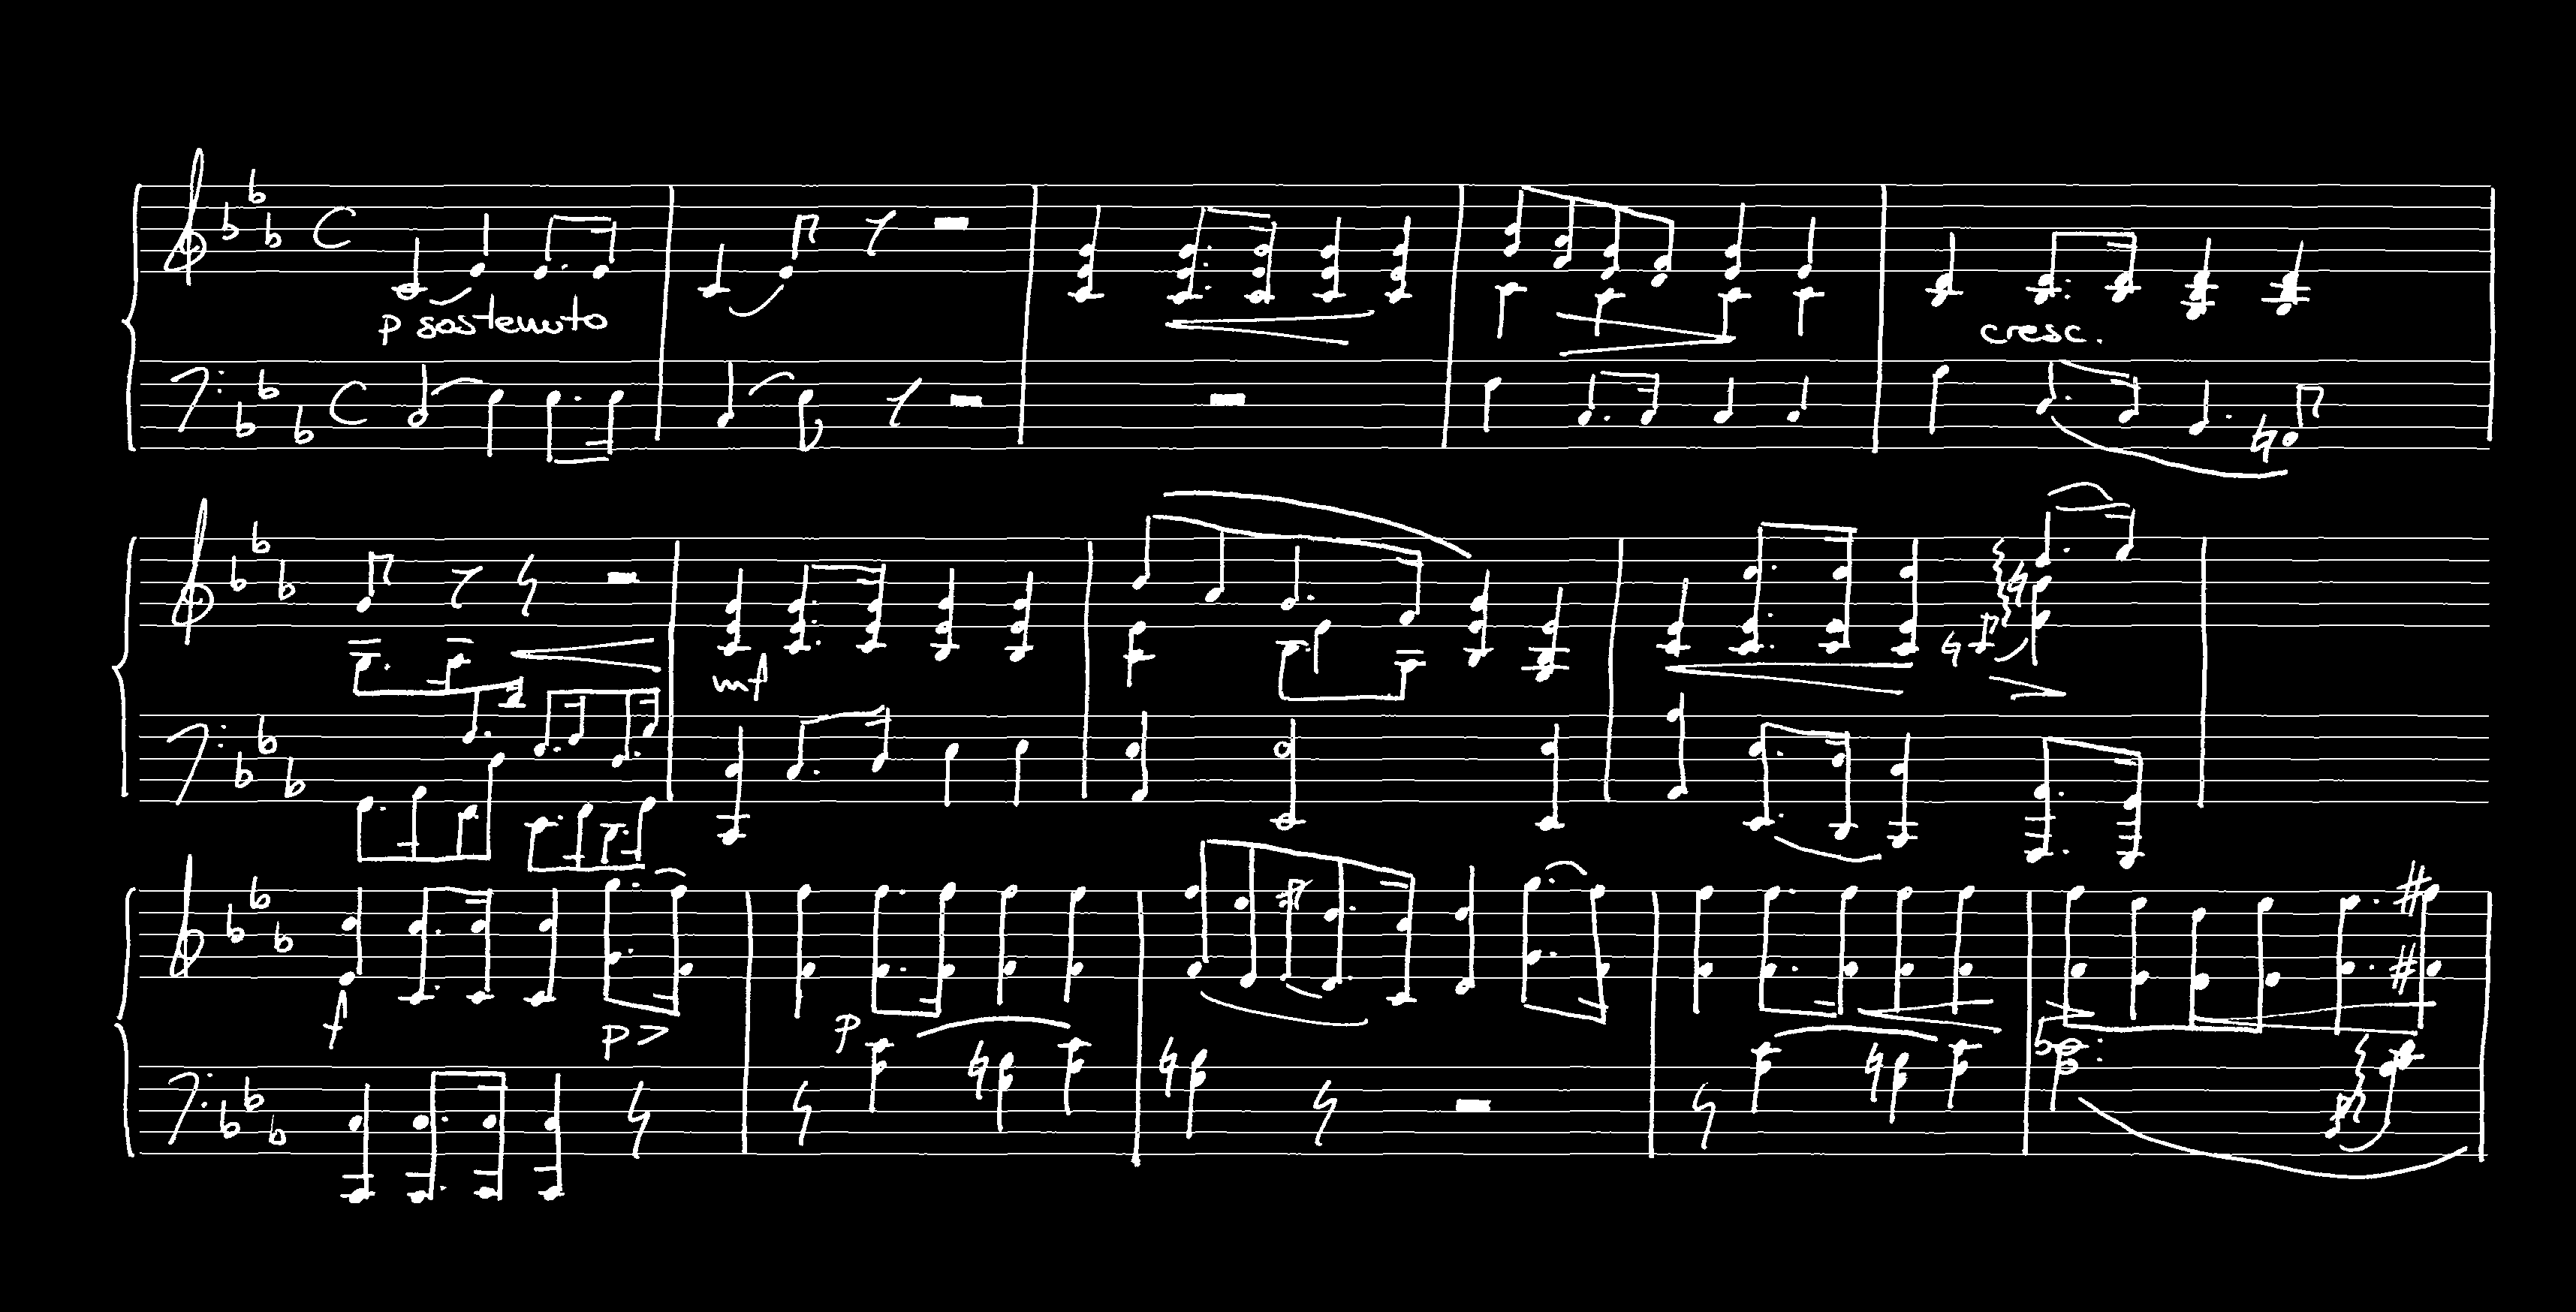 p sostenuto
cresc.
mf
f p
p